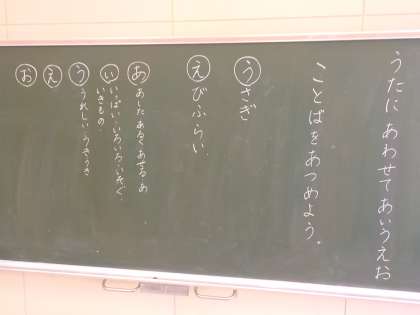 うたに あわせて あいうえお
ことばを あつめよう。
うさぎ
えびふらい
あ あした あるく あせる あ
い いっぱい・いろいろ・いそぐ・
いきもの・
う うれしい・うきうき
え
お